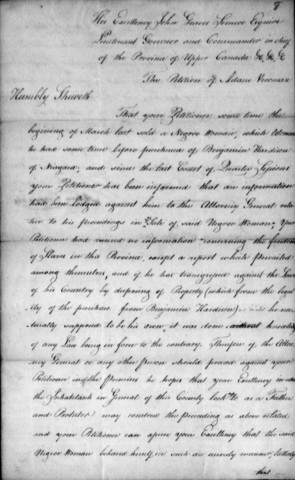 8
His Excellency John Graves Simcoe Esquire
Lieutenant Governor and Commander in chief
of the Province of Upper Canada &c, &c, &c
The Petition of Adam Vrooman
Humbly Sheweth
That your Petitioner some time the
begining of March last sold a Negroe Woman, which Woman
he had some time before purchased of Benjamin Hardison
of Niagara, and since the last Court of Quarter Sessions
your Petitioner has been informed that an information
had been lodged against him to the Attorney General rela-
tive to his proceedings in Sale of said Negroe Woman; your
Petitioner had received no information concerning the freedom
of Slaves in this Province, except a report which prevailed
among themselves, and if he has transgressed against the Laws
of his Country by disposing of Property (which from the legal-
ity of the purchase from Benjamin Hardison) he na-
turally supposed to be his own, it was done without knowledge
of any Law being in force to the contrary. Therefore if the Attor-
ney General or any other Person should proceed against your
Petitioner in the Premises he hopes that your Excellency in whom
the Inhabitants in General of this County look to as a Father
and Protector, may construe the proceeding as above related
and your Petitioner can assure your Excellency that the said
Negroe Woman behaved herself in such an unruly manner,
that